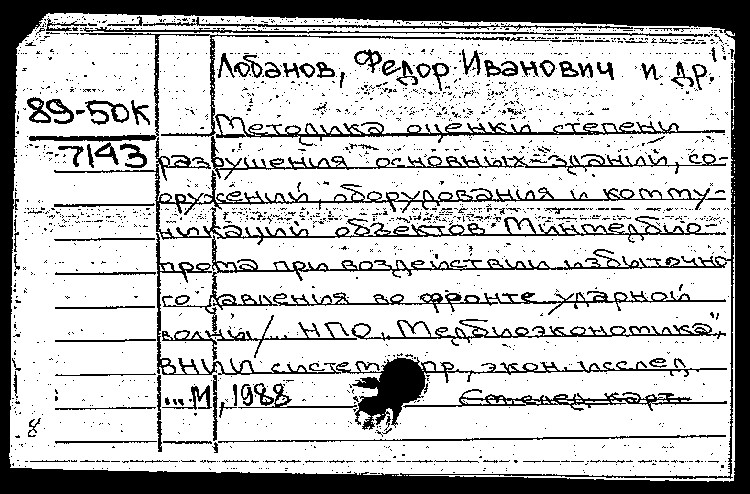 Лобанов, Федор Иванович и др.
89-50К
7143
Методика оценки степени
разрушения основных зданий, со-
оружений, оборудования и комму-
никаций объектов Минмедбио-
прома при воздействии избыточно-
го давления во фронте ударной
волны/... НПО „Медбиоэкономика",
ВНИИ систем пр., экон. исслед.
...М, 1988
См. след. карт.
8